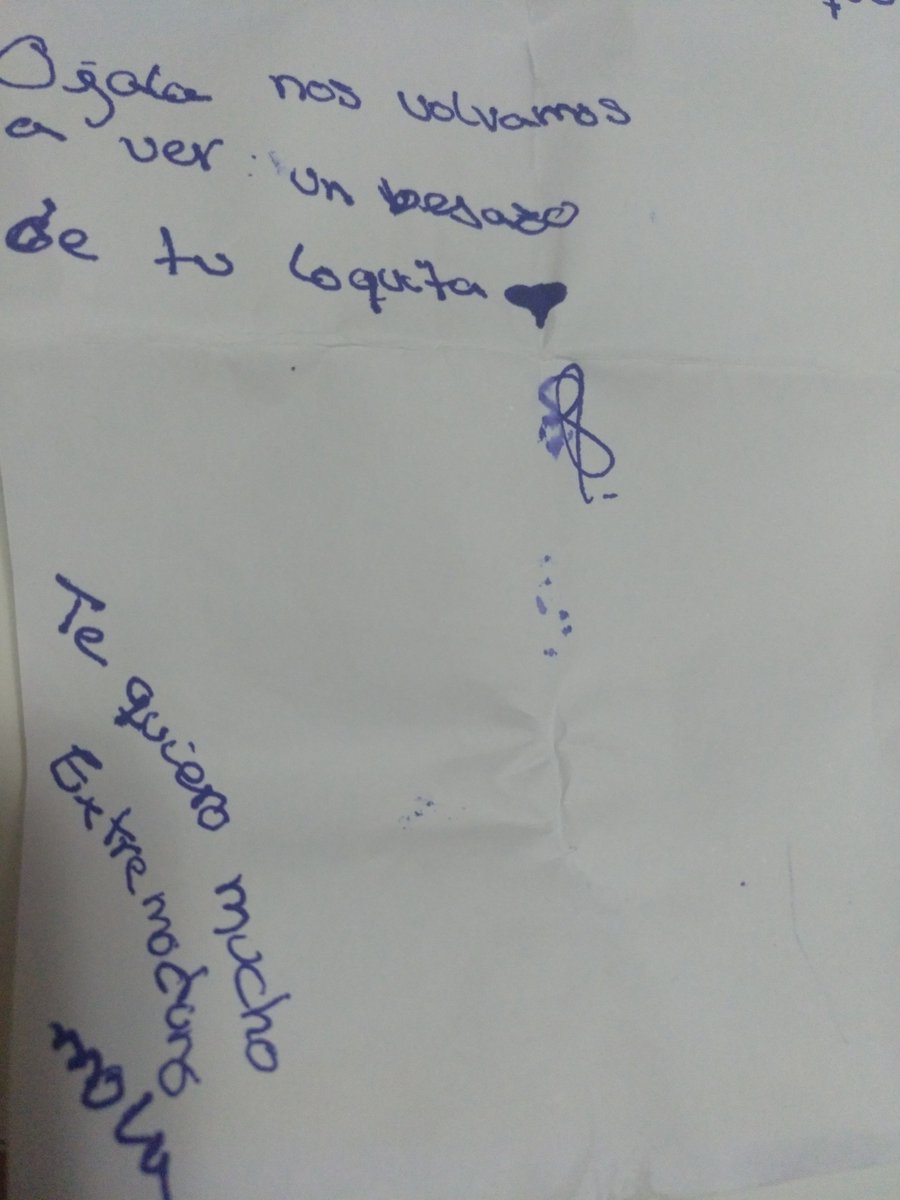 Ojala nos volvamos
a ver un besazo
de tu loquita
Te quiero mucho
Extremoduro
mola